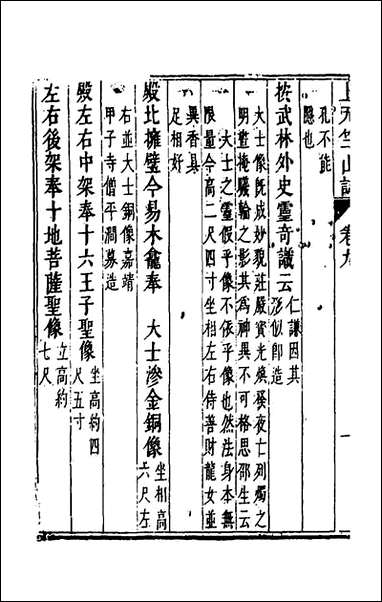 上天竺山誌 卷九 一
孔不能
隱也
按武林外史靈奇議云
仁謙因其
形似即造
大士像旣成妙貌莊嚴寶光煥發夜亡列燭之
明晝掩曦輪之影其爲神異不可格思邵生云
大士之靈假乎像不依乎像也然法身本無
限量今高二尺四寸坐相左右侍善財龍女並
異香具
足相好
殿北擁壁今易木龕奉 大士滲金銅像
坐相高
六尺左
右並大士銅像嘉靖
甲子寺僧平澗募造
殿左右中架奉十六王子聖像
坐高約四
尺五寸
左右後架奉十地菩薩聖像
立高約
七尺